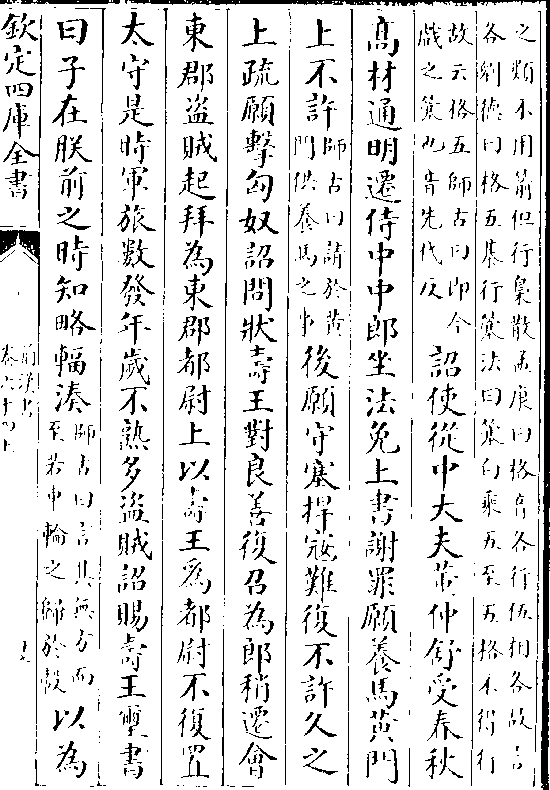 之類不用箭但行梟散孟康曰格音各行伍相各故言
各劉德曰格五棊行簺法曰簺白乘五至五格不得行
故云格五師古曰即今
戲之簺也音先代反
詔使從中大夫董仲舒受春秋
髙材通明遷侍中中郎坐法免上書謝罪願養馬黄門
上不許
師古曰請於黄
門供養馬之事
後願守塞捍寇難復不許久之
上疏願擊匈奴詔問狀壽王對良善復召為郎稍遷會
東郡盜賊起拜為東郡都尉上以壽王為都尉不復置
太守是時軍旅數發年歲不熟多盜賊詔賜壽王璽書
曰子在朕前之時知略輻湊
師古曰言其無方而
至若車輪之歸於轂
以為
欽定四庫全書
前漢書
卷六十四上